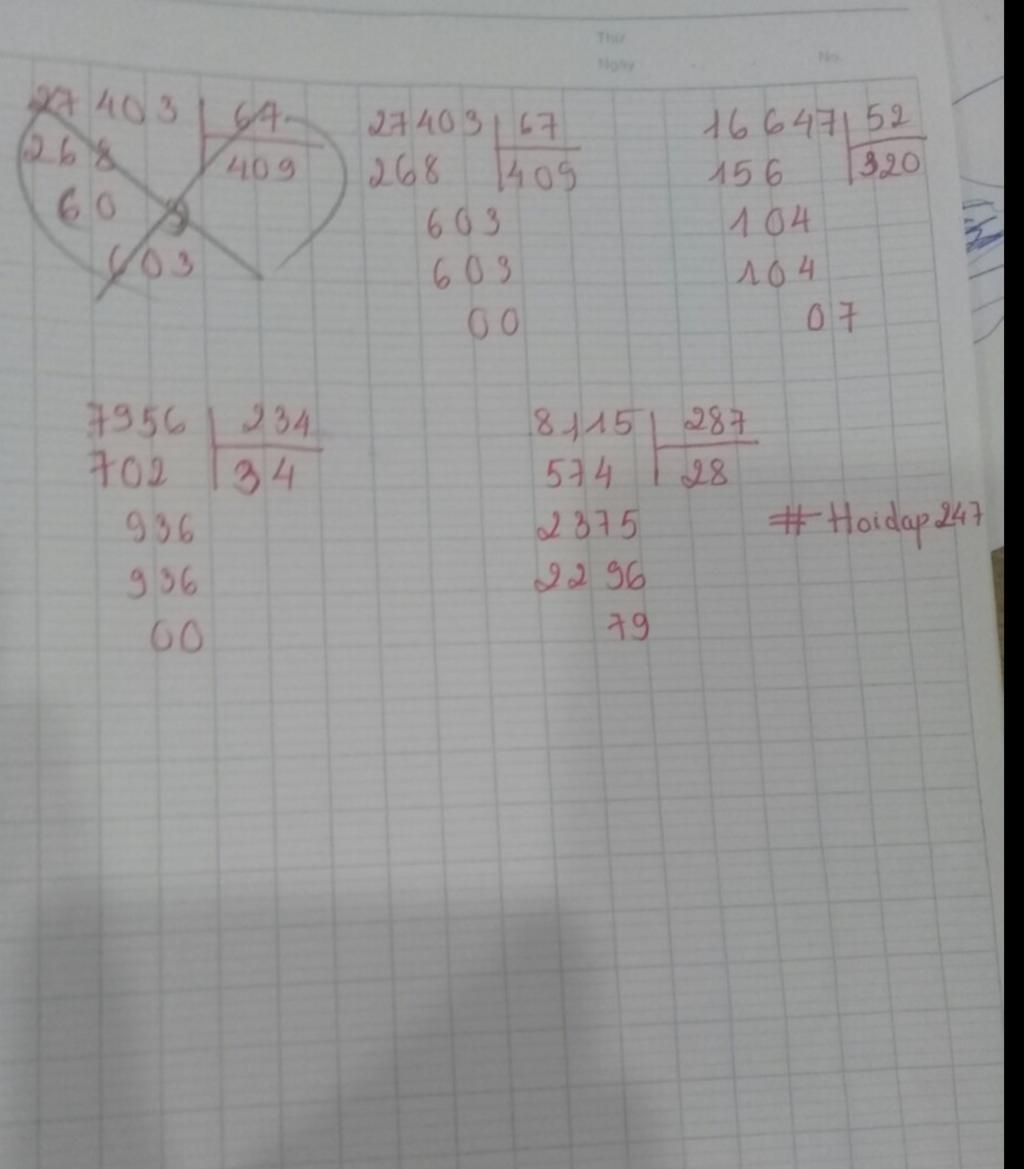 Thứ
Ngày No.
27 403 67
268 409
60
603
27403 67
268 409
603
603
00
16 647 52
156 320
104
104
07
7956 234
702 34
936
936
00
8115 287
574 28
2375
2296
79
# Hoidap247